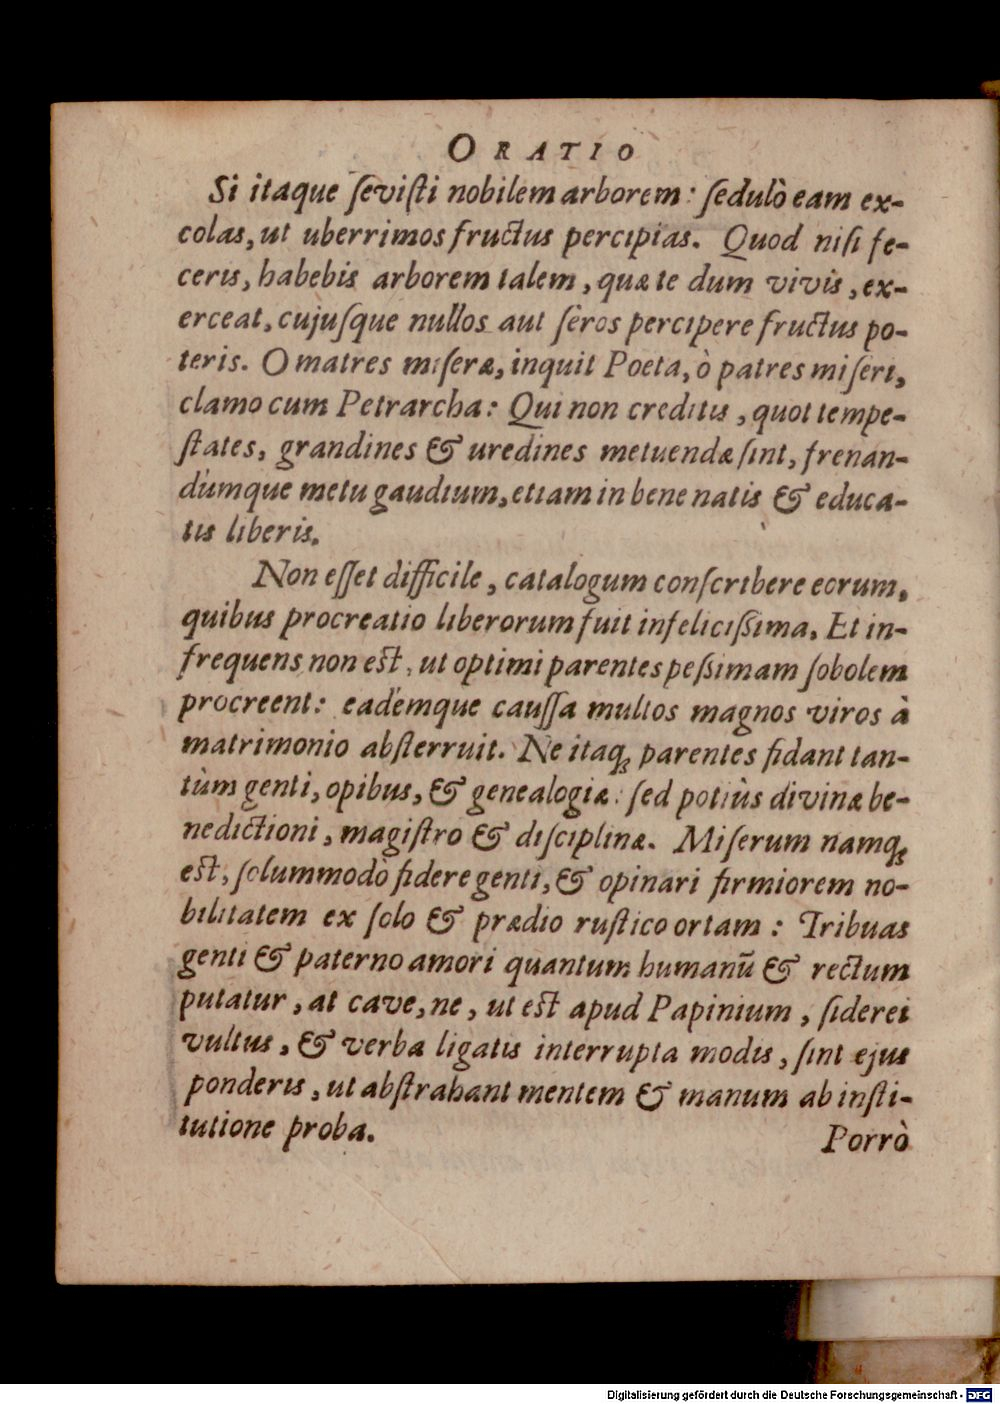 ORATIO
Si itaque ſeviſti nobilem arborem: ſedulò eam ex-
colas, ut uberrimos fructus percipias. Quod niſi fe-
ceris, habebis arborem talem, quæ te dum vivis, ex-
erceat, cujuſque nullos aut ſeros percipere fructus po-
teris. O matres miſeræ, inquit Poeta, ò patres miſeri,
clamo cum Petrarcha: Qui non creditis, quot tempe-
ſtates, grandines & uredines metuendæ ſint, frenan-
dúmque metu gaudium, etiam in bene natis & educa-
tis liberis.
Non eſſet difficile, catalogum conſcribere eorum,
quibus procreatio liberorum fuit infeliciſſima. Et in-
frequens non eſt, ut optimi parentes peſſimam ſobolem
procreent: eadémque cauſſa multos magnos viros à
matrimonio abſterruit. Ne itaq; parentes fidant tan-
tùm genti, opibus, & genealogiæ: ſed potiùs divinæ be-
nedictioni, magiſtro & diſciplinæ. Miſerum namq;
eſt, ſolummodò fidere genti, & opinari firmiorem no-
bilitatem ex ſolo & prædio ruſtico ortam: Tribuas
genti & paterno amori quantum humanũ & rectum
putatur, at cave, ne, ut eſt apud Papinium, ſiderei
vultus, & verba ligatis interrupta modis, ſint ejus
ponderis, ut abſtrahant mentem & manum ab inſti-
tutione proba.
Porrò
Digitalisierung gefördert durch die Deutsche Forschungsgemeinschaft - DFG